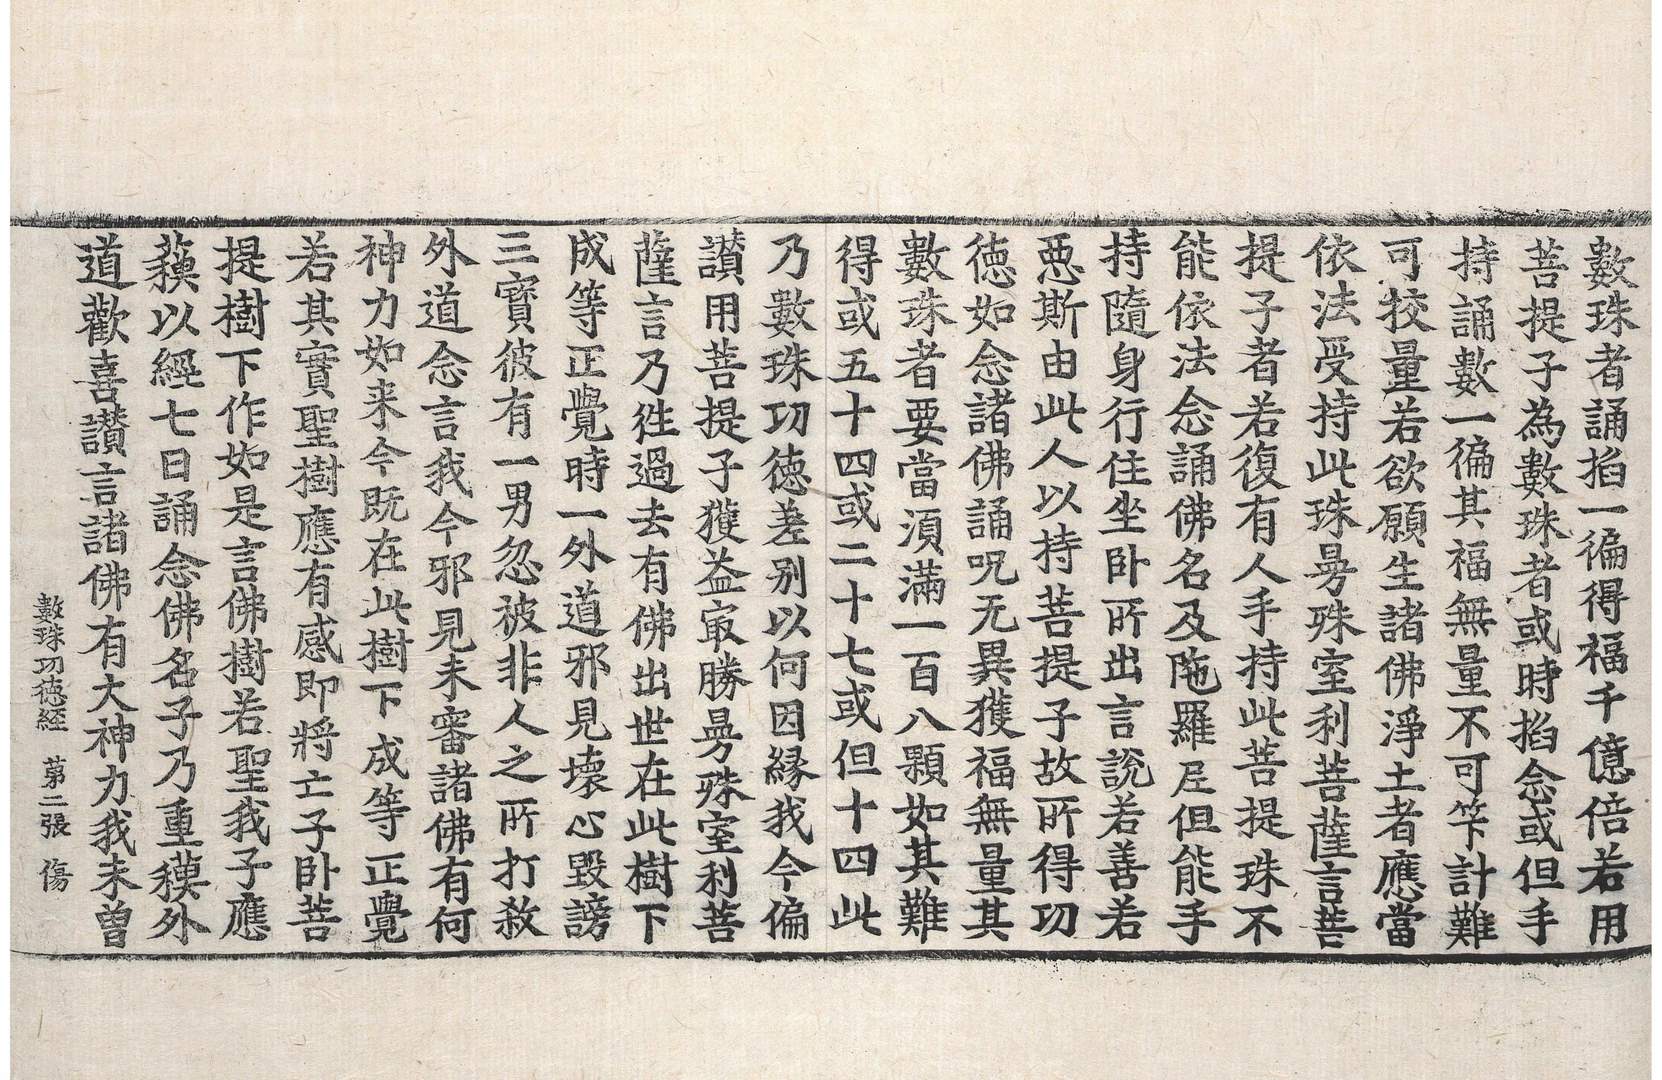 數珠者誦掐一徧得福千億倍若用
菩提子為數珠者或時掐念或但手
持誦數一徧其福無量不可笇計難
可挍量若欲願生諸佛淨土者應當
依法受持此珠曼殊室利菩薩言菩
提子者若復有人手持此菩提珠不
能依法念誦佛名及陁羅尼但能手
持隨身行住坐卧所出言說若善若
惡斯由此人以持菩提子故所得功
德如念諸佛誦呪无異獲福無量其
數珠者要當須滿一百八顆如其難
得或五十四或二十七或但十四此
乃數珠功德差別以何因緣我今偏
讃用菩提子獲益冣勝曼殊室利菩
薩言乃徃過去有佛出世在此樹下
成等正覺時一外道邪見壞心毀謗
三寶彼有一男忽被非人之所打煞
外道念言我今邪見未審諸佛有何
神力如来今既在此樹下成等正覺
若其實聖樹應有感即將亡子卧菩
提樹下作如是言佛樹若聖我子應
蘇以經七日誦念佛名子乃重蘇外
道歡喜讃言諸佛有大神力我未曽
數珠功德経 苐二張 傷